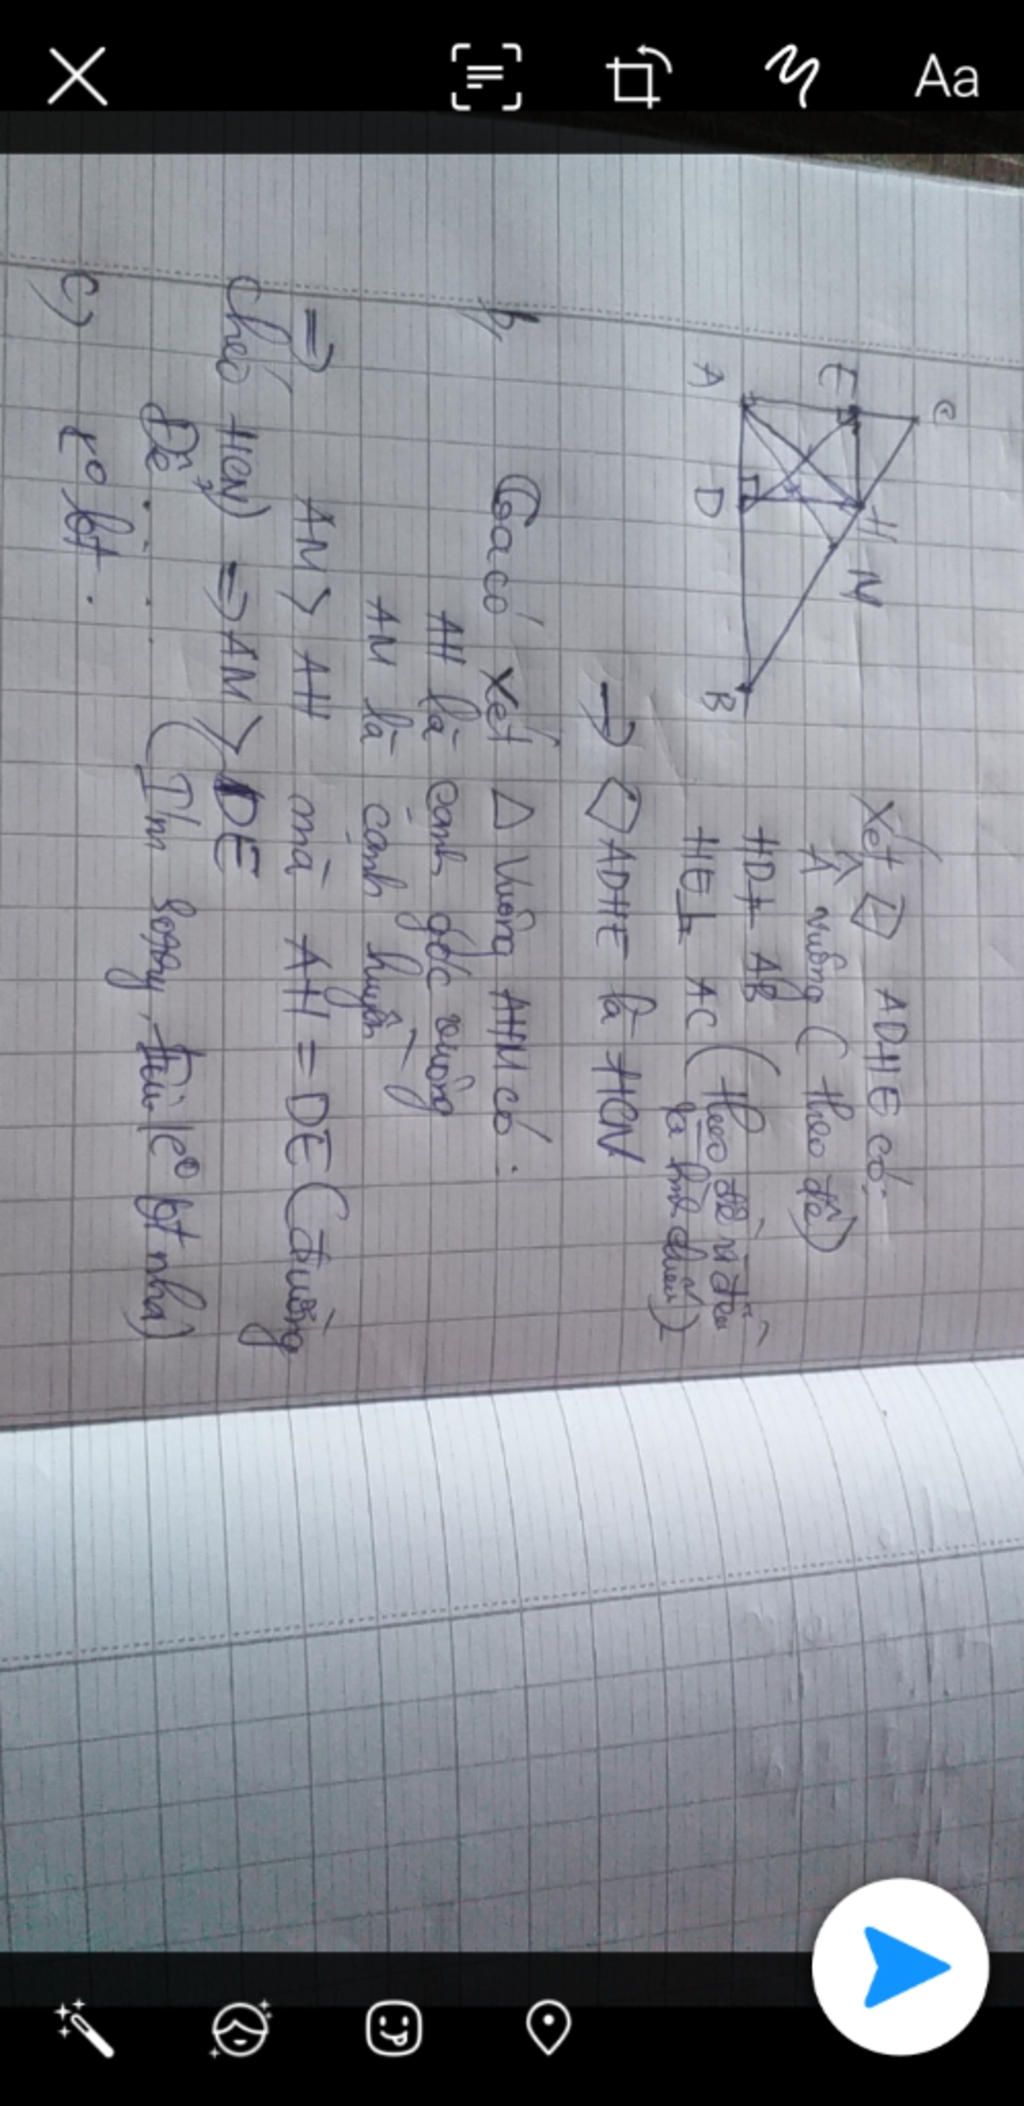 Aa
C
E
H
M
A
D
B
Xét ◇ ADHE có:
Â vuông (theo đề)
HD⊥ AB
HE⊥ AC (theo đề vì đều
là hình chiếu)
→ ◇ ADHE là HCN
b,
Ta có Xét △ vuông AHM có:
AH là cạnh góc vuông
AM là cạnh huyền
⇒ AM > AH mà AH = DE (đường
chéo HCN) ⇒ AM > DE
Để ..... (Tm , thì k° bt nha)
c) k° bt.